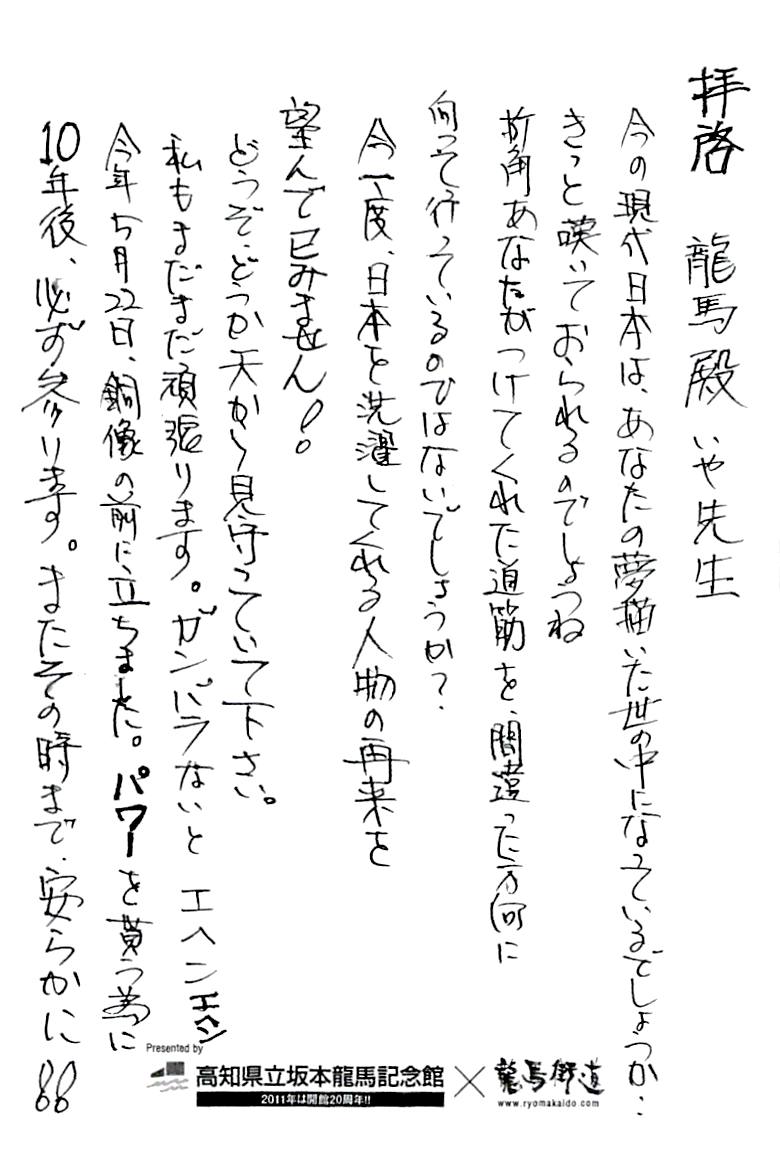 拝啓　龍馬殿 いや先生
今の現代日本は、あなたの夢描いた世の中になっているでしょうか‥
きっと嘆いておられるのでしょうね
折角あなたがつけてくれた道筋を、間違った方向に
向って行っているのではないでしょうか？
今一度、日本を洗濯してくれる人物の再来を
望んで已みません！。
どうぞ、どうか天から見守っていて下さい。
私もまだまだ頑張ります。ガンバラないと エヘン エヘン
今年5月22日、銅像の前に立ちました。パワーを貰う為に
10年後、必ず参ります。またその時まで、安らかに
Presented by
高知県立坂本龍馬記念館 × 龍馬街道
2011年は開館20周年!!
www.ryomakaido.com